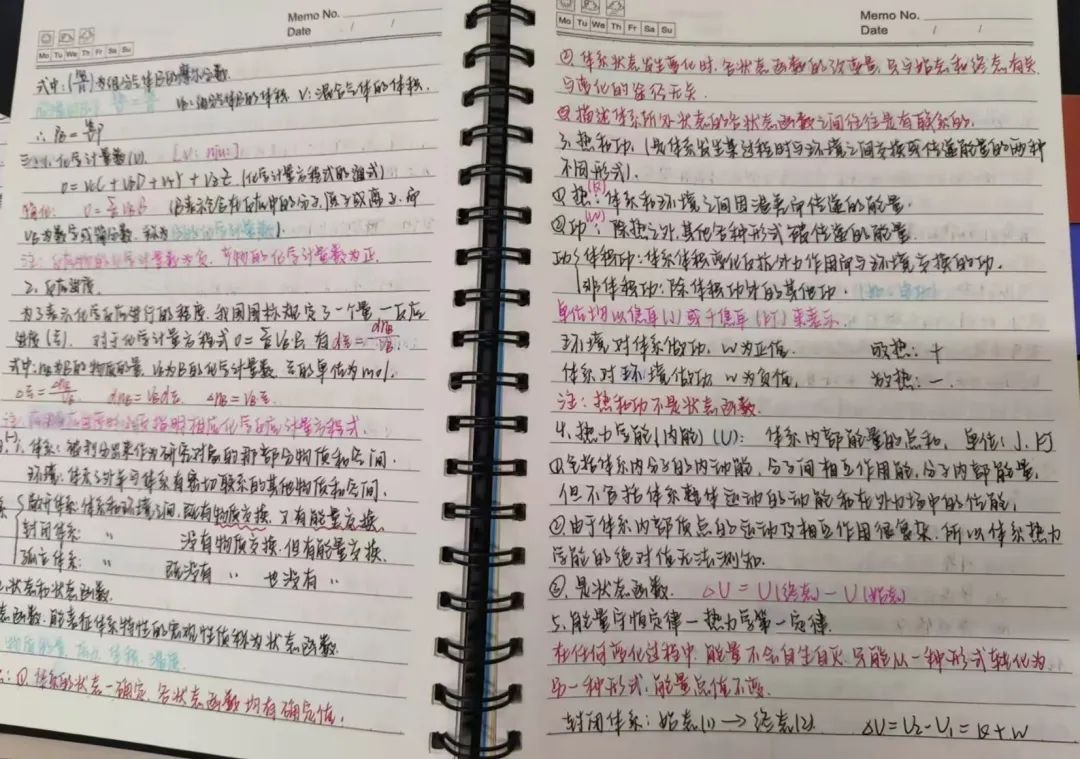 Memo No.
Date / /
Mo Tu We Th Fr Sa Su
式中:() 为组分气体B的摩尔分数.
VB:组分气体B的体积. V:混合气体的体积.
∴ PB =
三、1. 化学计量数(ν). [ν: nju:]
0 = νcC + νDD + νYY + νZZ (化学计量方程式的通式)
简化: 0 = Σ νBB (B表示包含在反应中的分子、原子或离子, 而
νB为数字或简分数, 称为B的化学计量数).
注: 反应物的化学计量数为负, 产物的化学计量数为正.
2. 反应进度.
为了表示化学反应进行的程度, 我国国标规定了一个量—反应
进度(ξ). 对于化学计量方程式 0 = Σ νBB, 有 dξ = dnB/νB.
式中: nB为B的物质的量, νB为B的化学计量数, ξ的单位为mol.
Δξ = ΔnB/νB dnB = νBdξ. ΔnB = νBξ.
注: 应用反应进度时必须指明相应化学反应计量方程式.
体系: 被划分出来作为研究对象的那部分物质和空间.
环境: 体系之外并与体系有密切联系的其他物质和空间.
敞开体系: 体系和环境之间, 既有物质交换, 又有能量交换.
封闭体系: 〃 没有物质交换, 但有能量交换.
孤立体系: 〃 既没有 〃 也没有 〃
状态和状态函数.
态函数: 能表征体系特性的宏观性质称为状态函数.
物质的量, 压力, 体积, 温度.
① 体系的状态一确定, 各状态函数均有确定值.
Memo No.
Date / /
Mo Tu We Th Fr Sa Su
② 体系状态发生变化时, 各状态函数的改变量, 只与始态和终态有关
与变化的途径无关.
描述体系所处状态的各状态函数之间往往是有联系的.
3. 热和功. (是体系发生某过程时与环境之间交换或传递能量的两种
不同形式).
① 热(Q): 体系和环境之间因温差而传递的能量.
② 功(W): 除热之外, 其他各种形式被传递的能量.
功{体积功: 体系体积变化反抗外力作用而与环境交换的功.
非体积功: 除体积功外的其他功.
单位均以焦耳(J)或千焦耳(kJ)来表示.
环境对体系做功, W为正值. 吸热: +
体系对环境做功, W为负值. 放热: -.
注: 热和功不是状态函数.
4. 热力学能(内能)(U): 体系内部能量的总和, 单位: J. kJ
① 包括体系内分子的内动能, 分子间相互作用能, 分子内部能量,
但不包括体系整体运动的动能和在外力场中的位能.
② 由于体系内部质点的运动及相互作用很复杂, 所以体系热力
学能的绝对值无法测知.
③ 是状态函数. ΔU = U(终态) - U(始态)
5. 能量守恒定律—热力学第一定律.
在任何变化过程中, 能量不会自生自灭, 只能从一种形式转化为
另一种形式, 能量总值不变.
封闭体系: 始态(1) → 终态(2). ΔU = U2 - U1 = Q + W